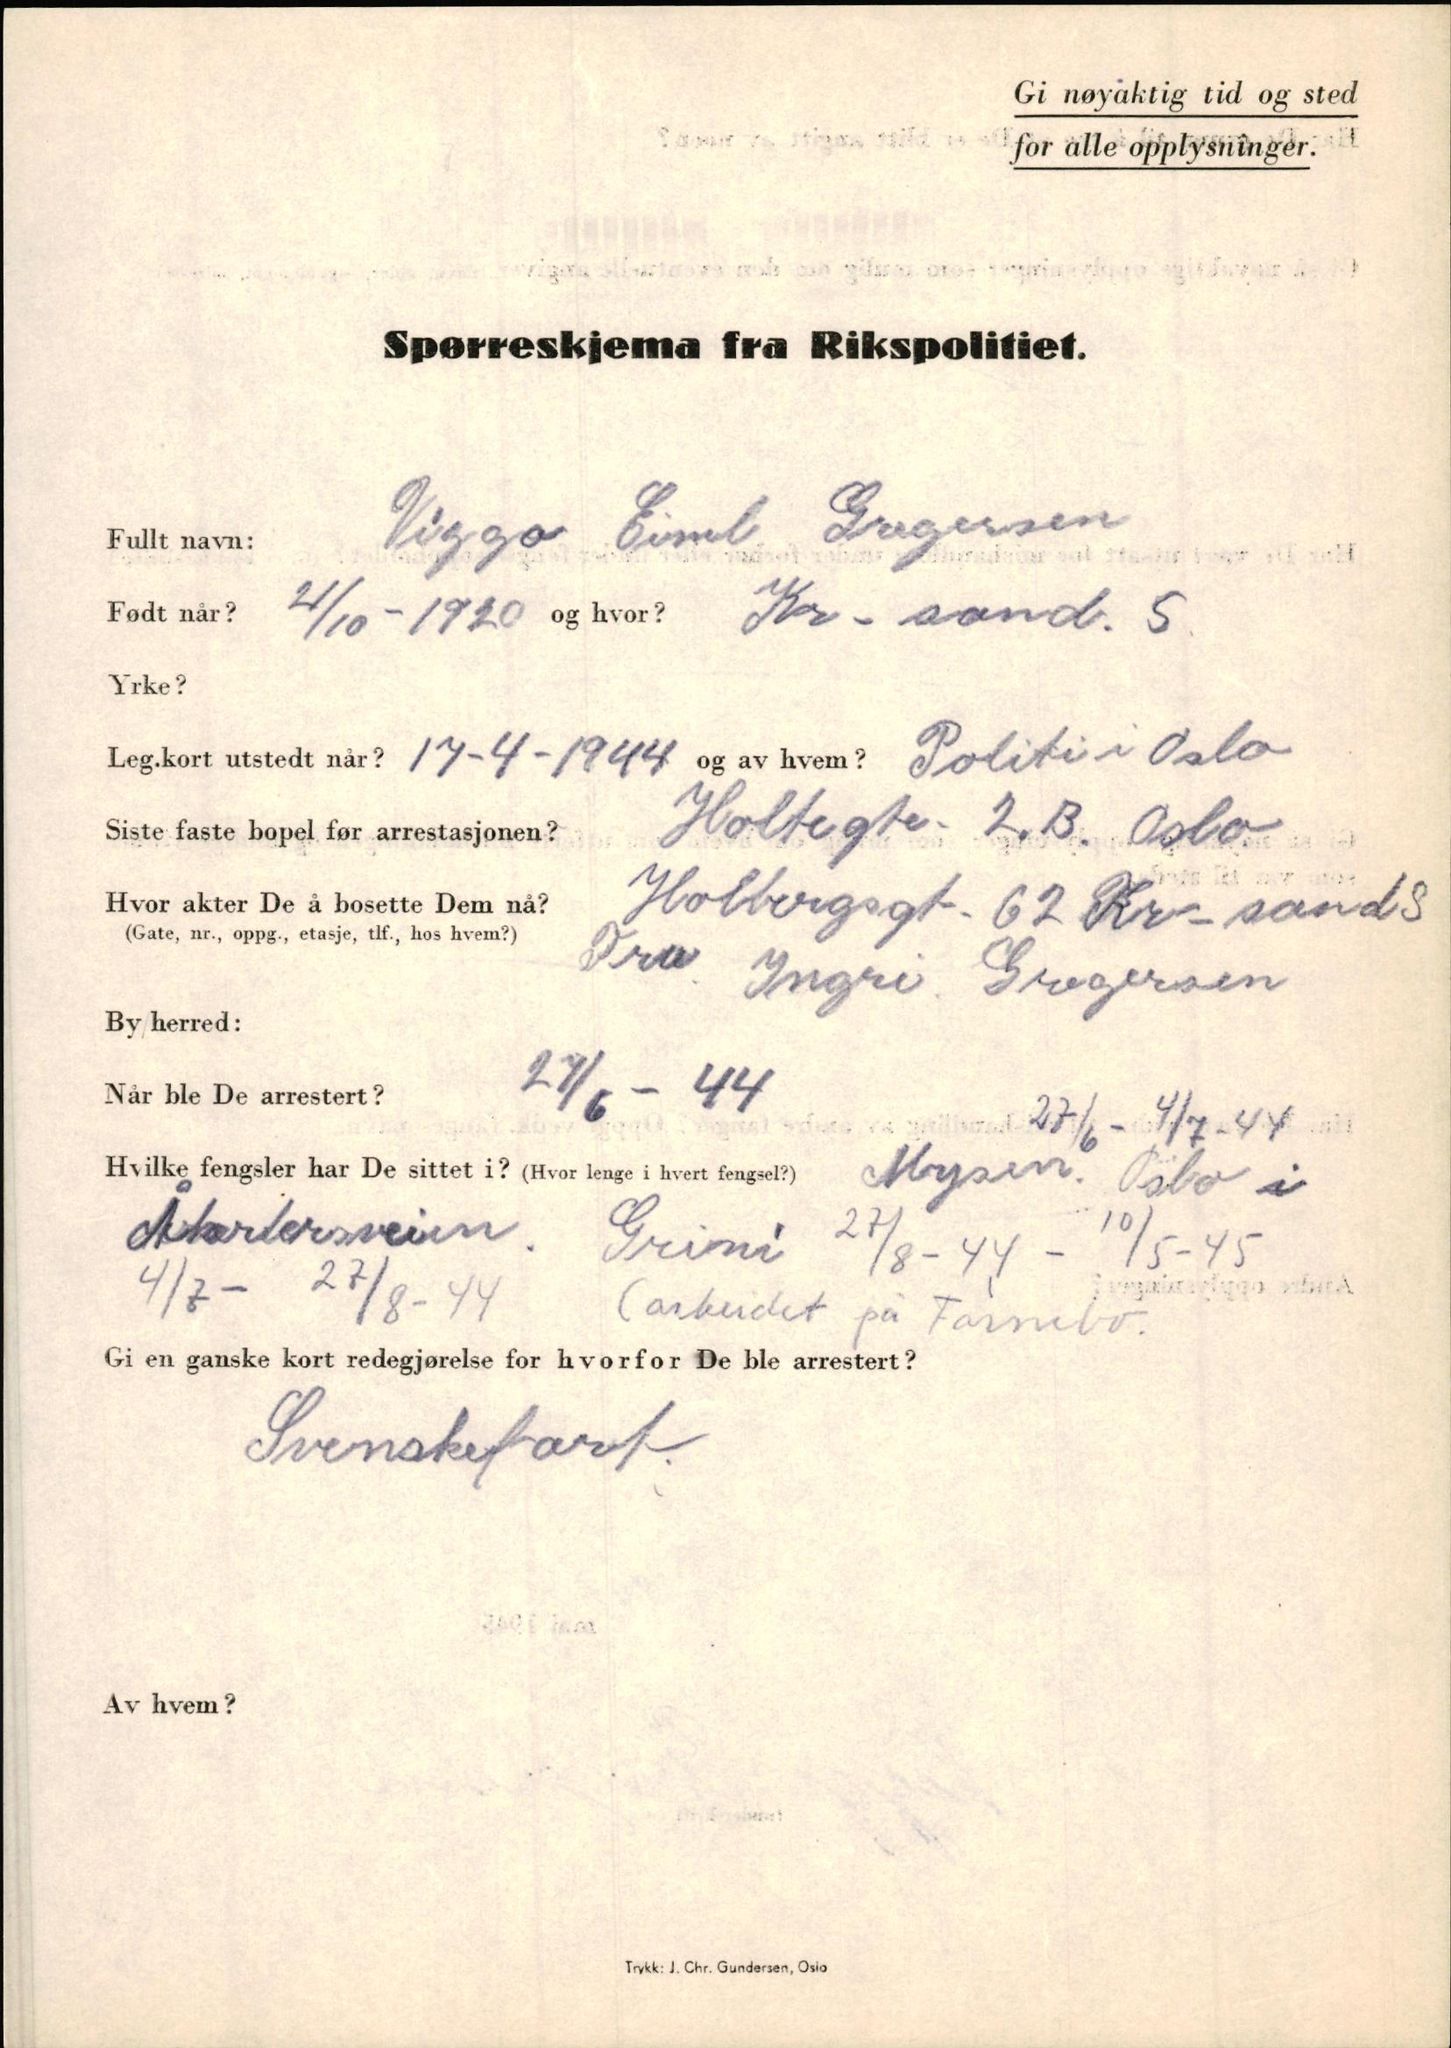 Gi nøyaktig tid og sted
for alle opplysninger.
Spørreskjema fra Rikspolitiet.
Fullt navn: Viggo Eiml Gregersen
Født når? 21/10-1920 og hvor? Kr-sand. S.
Yrke?
Leg.kort utstedt når? 17-4-1944 og av hvem? Politi i Oslo
Siste faste bopel før arrestasjonen? Holtegte- 2.B. Oslo
Hvor akter De å bosette Dem nå? Holbergsgt- 62 Kr-sand S
(Gate, nr., oppg., etasje, tlf., hos hvem?)
Fru. Ingri. Gregersen
By/herred:
Når ble De arrestert? 27/6-44
27/6-4/7-44
Hvilke fengsler har De sittet i? (Hvor lenge i hvert fengsel?) Mysen. Oslo i
Åkerbersveien. Grini 27/8-44 - 10/5-45
4/7- 27/8-44 (arbeidet på Fornebo.
Gi en ganske kort redegjørelse for hvorfor De ble arrestert?
Svensketart.
Av hvem?
Trykk: J. Chr. Gundersen, Oslo